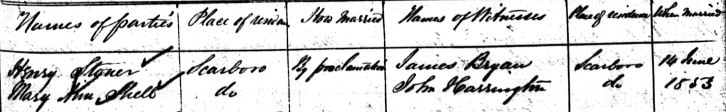 Names of parties Place of residen How Married Names of Witnesses Place of residence When Married
Henry Stoner Scarboro By proclamation James Bryan Scarboro 14 June
Mary Ann Shell do John Harrington do 1853